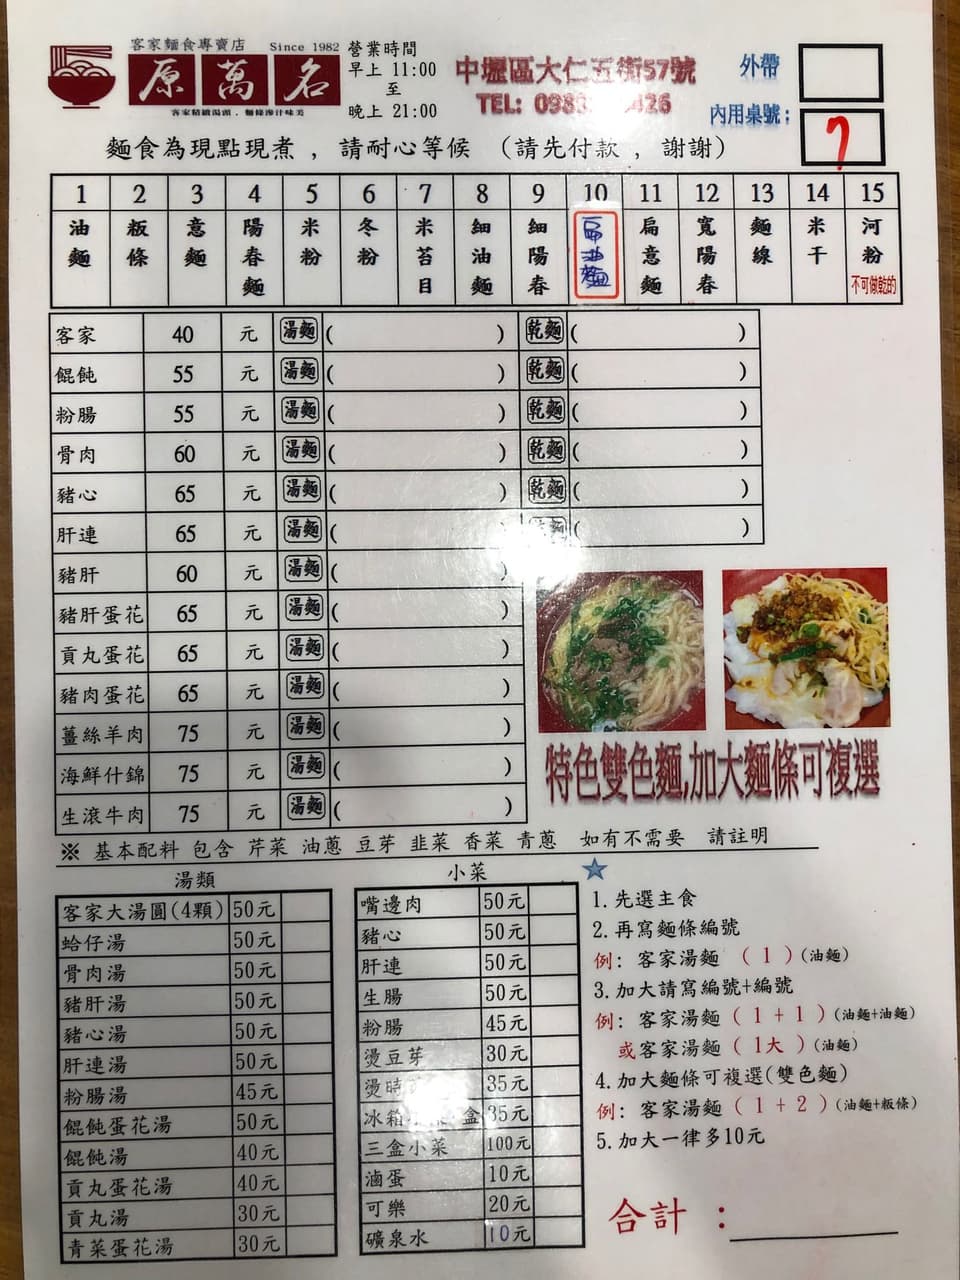 客家麵食專賣店 Since 1982
原萬名
客家精緻湯頭，麵條滲汁味美
營業時間
早上 11:00
至
晚上 21:00
中壢區大仁五街57號
TEL: 098 426
外帶
內用桌號： 7
麵食為現點現煮，請耐心等候 （請先付款，謝謝）
1 2 3 4 5 6 7 8 9 10 11 12 13 14 15
油麵 粄條 意麵 陽春麵 米粉 冬粉 米苔目 細油麵 細陽春 扁油麵 扁意麵 寬陽春 麵線 米干 河粉 不可做乾的
客家 40 元 湯麵 ( ) 乾麵 ( )
餛飩 55 元 湯麵 ( ) 乾麵 ( )
粉腸 55 元 湯麵 ( ) 乾麵 ( )
骨肉 60 元 湯麵 ( ) 乾麵 ( )
豬心 65 元 湯麵 ( ) 乾麵 ( )
肝連 65 元 湯麵 ( ) 乾麵 ( )
豬肝 60 元 湯麵 ( )
豬肝蛋花 65 元 湯麵 ( )
貢丸蛋花 65 元 湯麵 ( )
豬肉蛋花 65 元 湯麵 ( )
薑絲羊肉 75 元 湯麵 ( )
海鮮什錦 75 元 湯麵 ( )
生滾牛肉 75 元 湯麵 ( )
特色雙色麵,加大麵條可複選
※ 基本配料 包含 芹菜 油蔥 豆芽 韭菜 香菜 青蔥 如有不需要 請註明
湯類
客家大湯圓(4顆) 50元
蛤仔湯 50元
骨肉湯 50元
豬肝湯 50元
豬心湯 50元
肝連湯 50元
粉腸湯 45元
餛飩蛋花湯 50元
餛飩湯 40元
貢丸蛋花湯 40元
貢丸湯 30元
青菜蛋花湯 30元
小菜
嘴邊肉 50元
豬心 50元
肝連 50元
生腸 50元
粉腸 45元
燙豆芽 30元
燙時 35元
冰箱 盒 35元
三盒小菜 100元
滷蛋 10元
可樂 20元
礦泉水 10元
1.先選主食
2.再寫麵條編號
例：客家湯麵 ( 1 ) (油麵)
3.加大請寫編號+編號
例：客家湯麵 ( 1 + 1 ) (油麵+油麵)
或客家湯麵 ( 1大 ) (油麵)
4.加大麵條可複選(雙色麵)
例：客家湯麵 ( 1 + 2 ) (油麵+粄條)
5.加大一律多10元
合計：